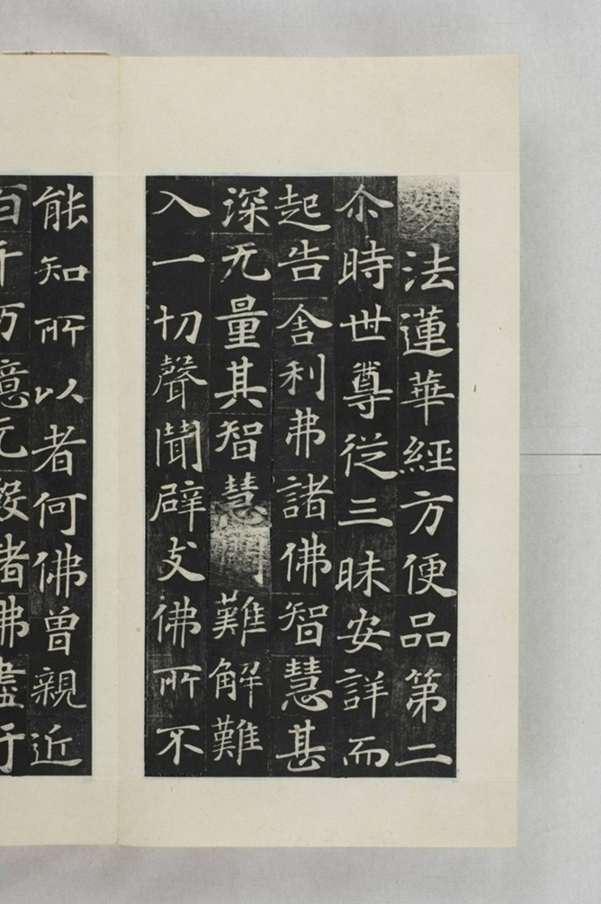 妙法蓮華經方便品第二
尒時世尊從三昧安詳而
起告舍利弗諸佛智慧甚
深无量其智慧門難解難
入一切聲聞辟支佛所不
能知所以者何佛曾親近
百千万億无數諸佛盡行